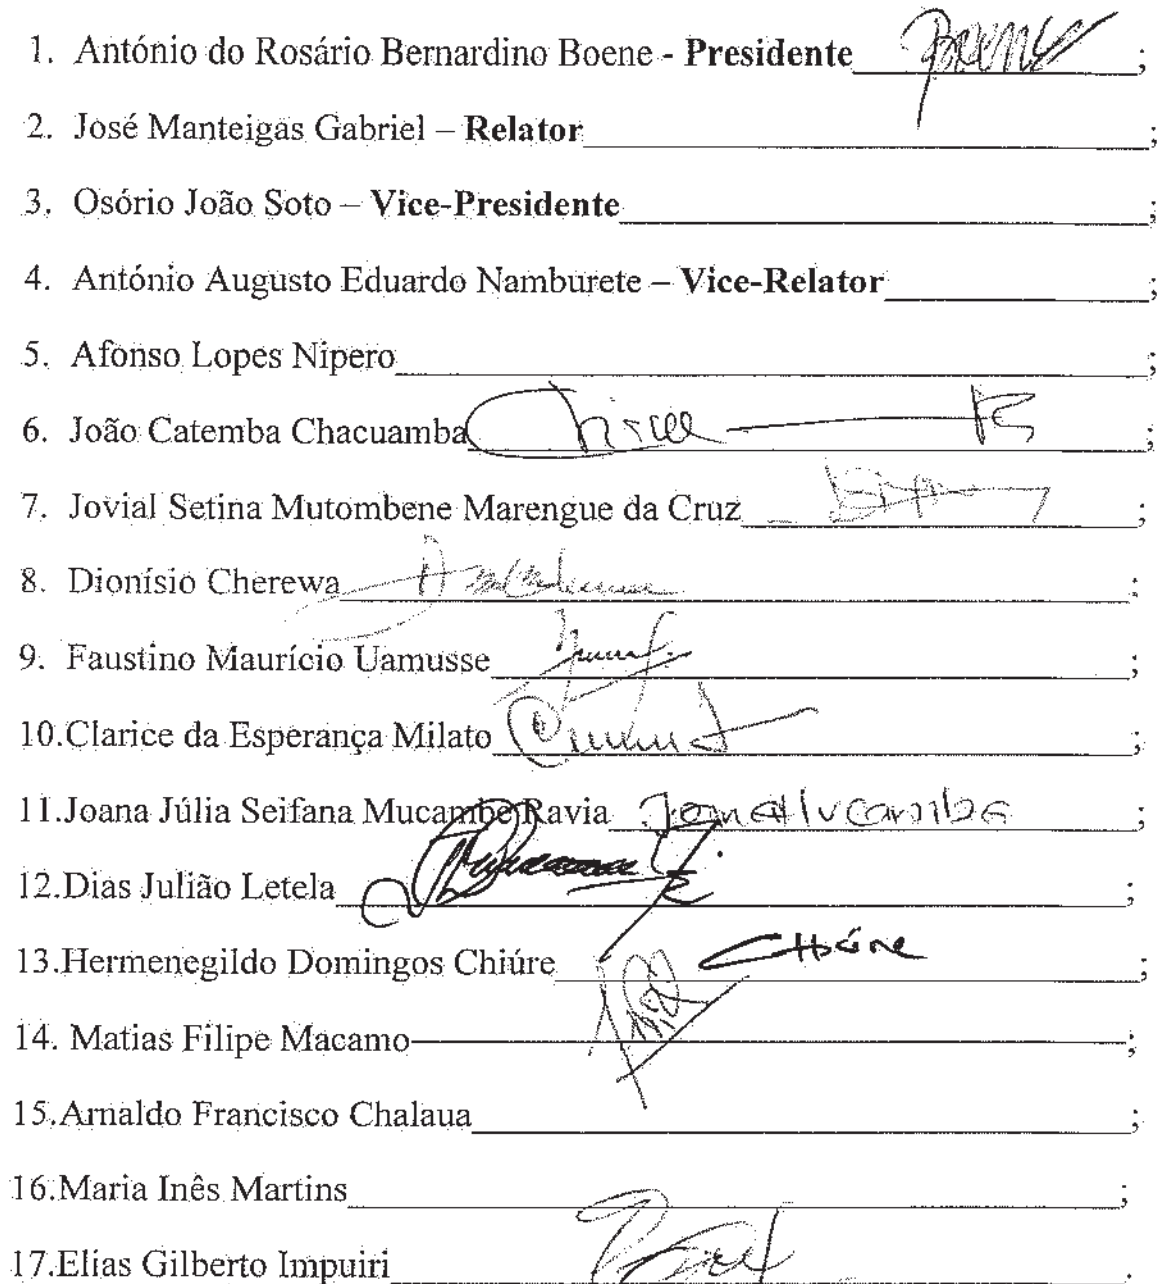 1. António do Rosário Bernardino Boene - Presidente Boene;
2. José Manteigas Gabriel – Relator;
3. Osório João Soto – Vice-Presidente;
4. António Augusto Eduardo Namburete – Vice-Relator;
5. Afonso Lopes Nipero;
6. João Catemba Chacuamba;
7. Jovial Setina Mutombene Marengue da Cruz;
8. Dionísio Cherewa;
9. Faustino Maurício Uamusse;
10.Clarice da Esperança Milato;
11.Joana Júlia Seifana Mucambe Ravia;
12.Dias Julião Letela;
13.Hermenegildo Domingos Chiúre Chiúre;
14. Matias Filipe Macamo;
15.Arnaldo Francisco Chalaua;
16.Maria Inês Martins;
17.Elias Gilberto Impuiri;